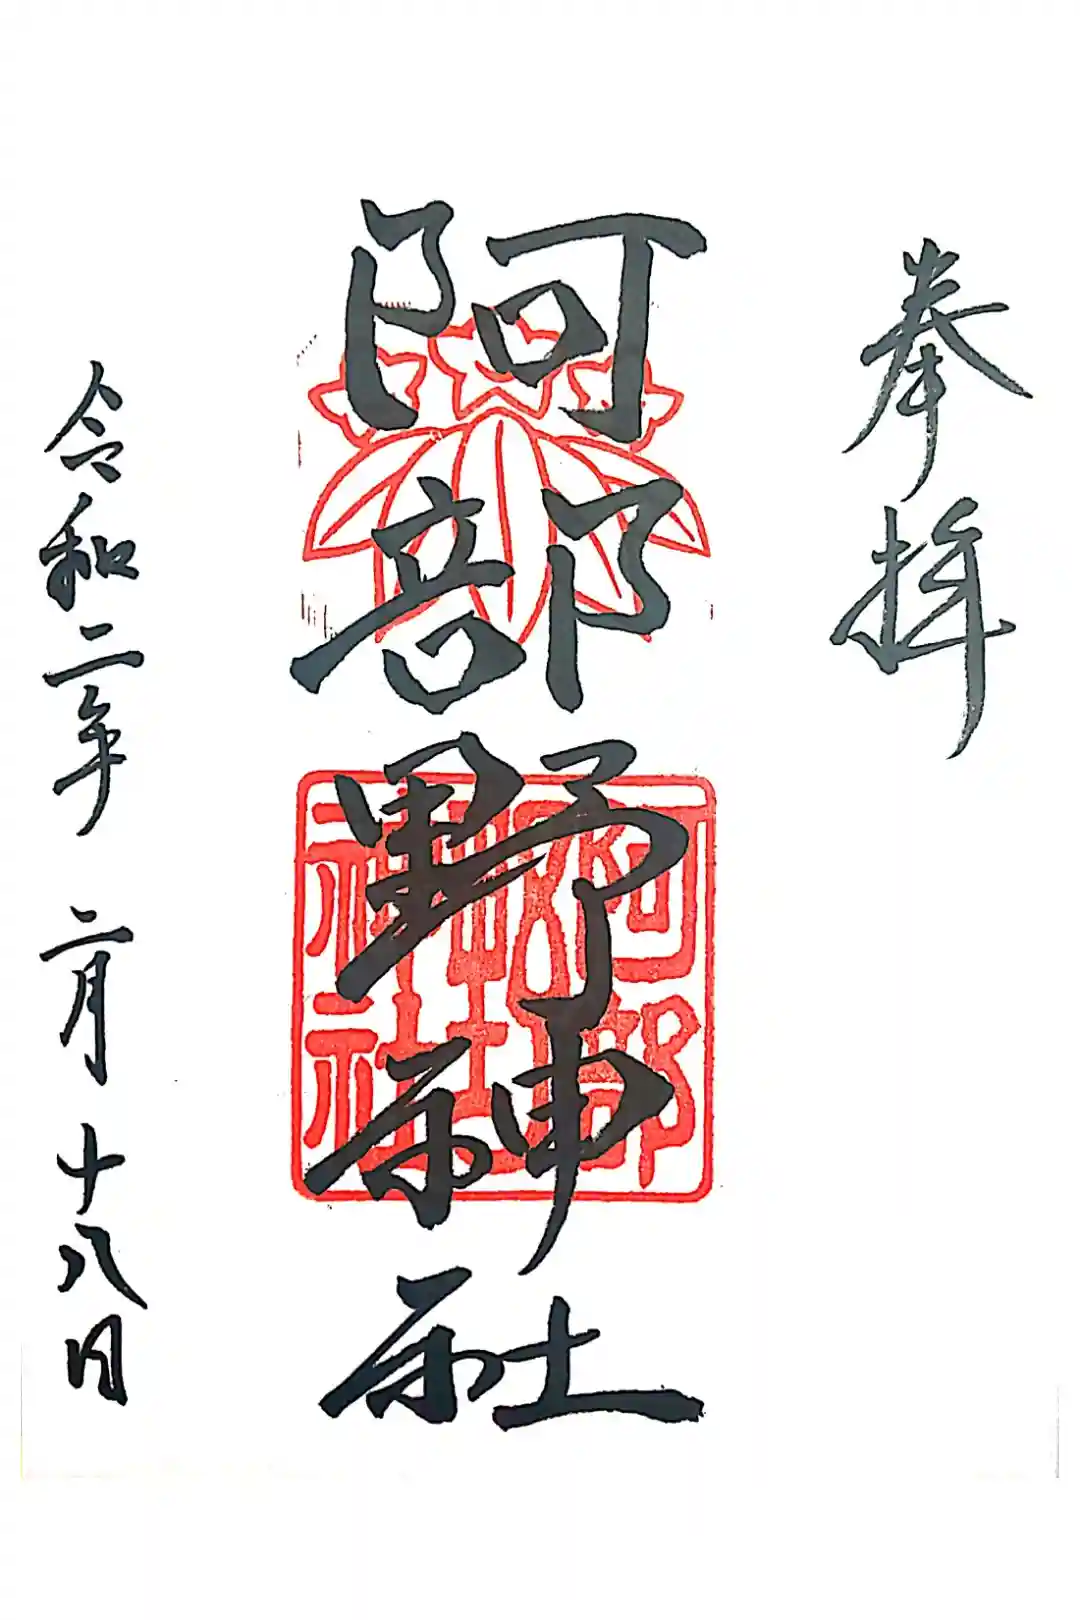 奉拝
阿部野神社
阿部野神社
令和二年 二月 十八日